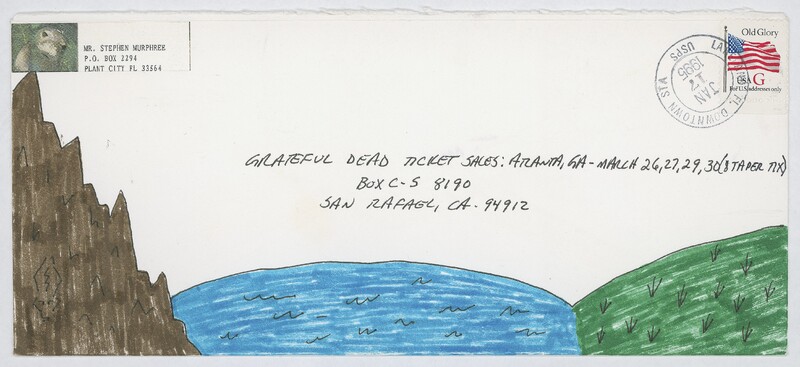 MR. STEPHEN MURPHREE
P.O. BOX 2294
PLANT CITY FL 33564
Old Glory
USA G
For U.S. addresses only
USPS
JAN
17
1995
FL DOWNTOWN STA
GRATEFUL DEAD TICKET SALES: ATLANTA, GA - MARCH 26, 27, 29, 30 (8 TAPER TIX)
BOX C-S 8190
SAN RAFAEL, CA. 94912